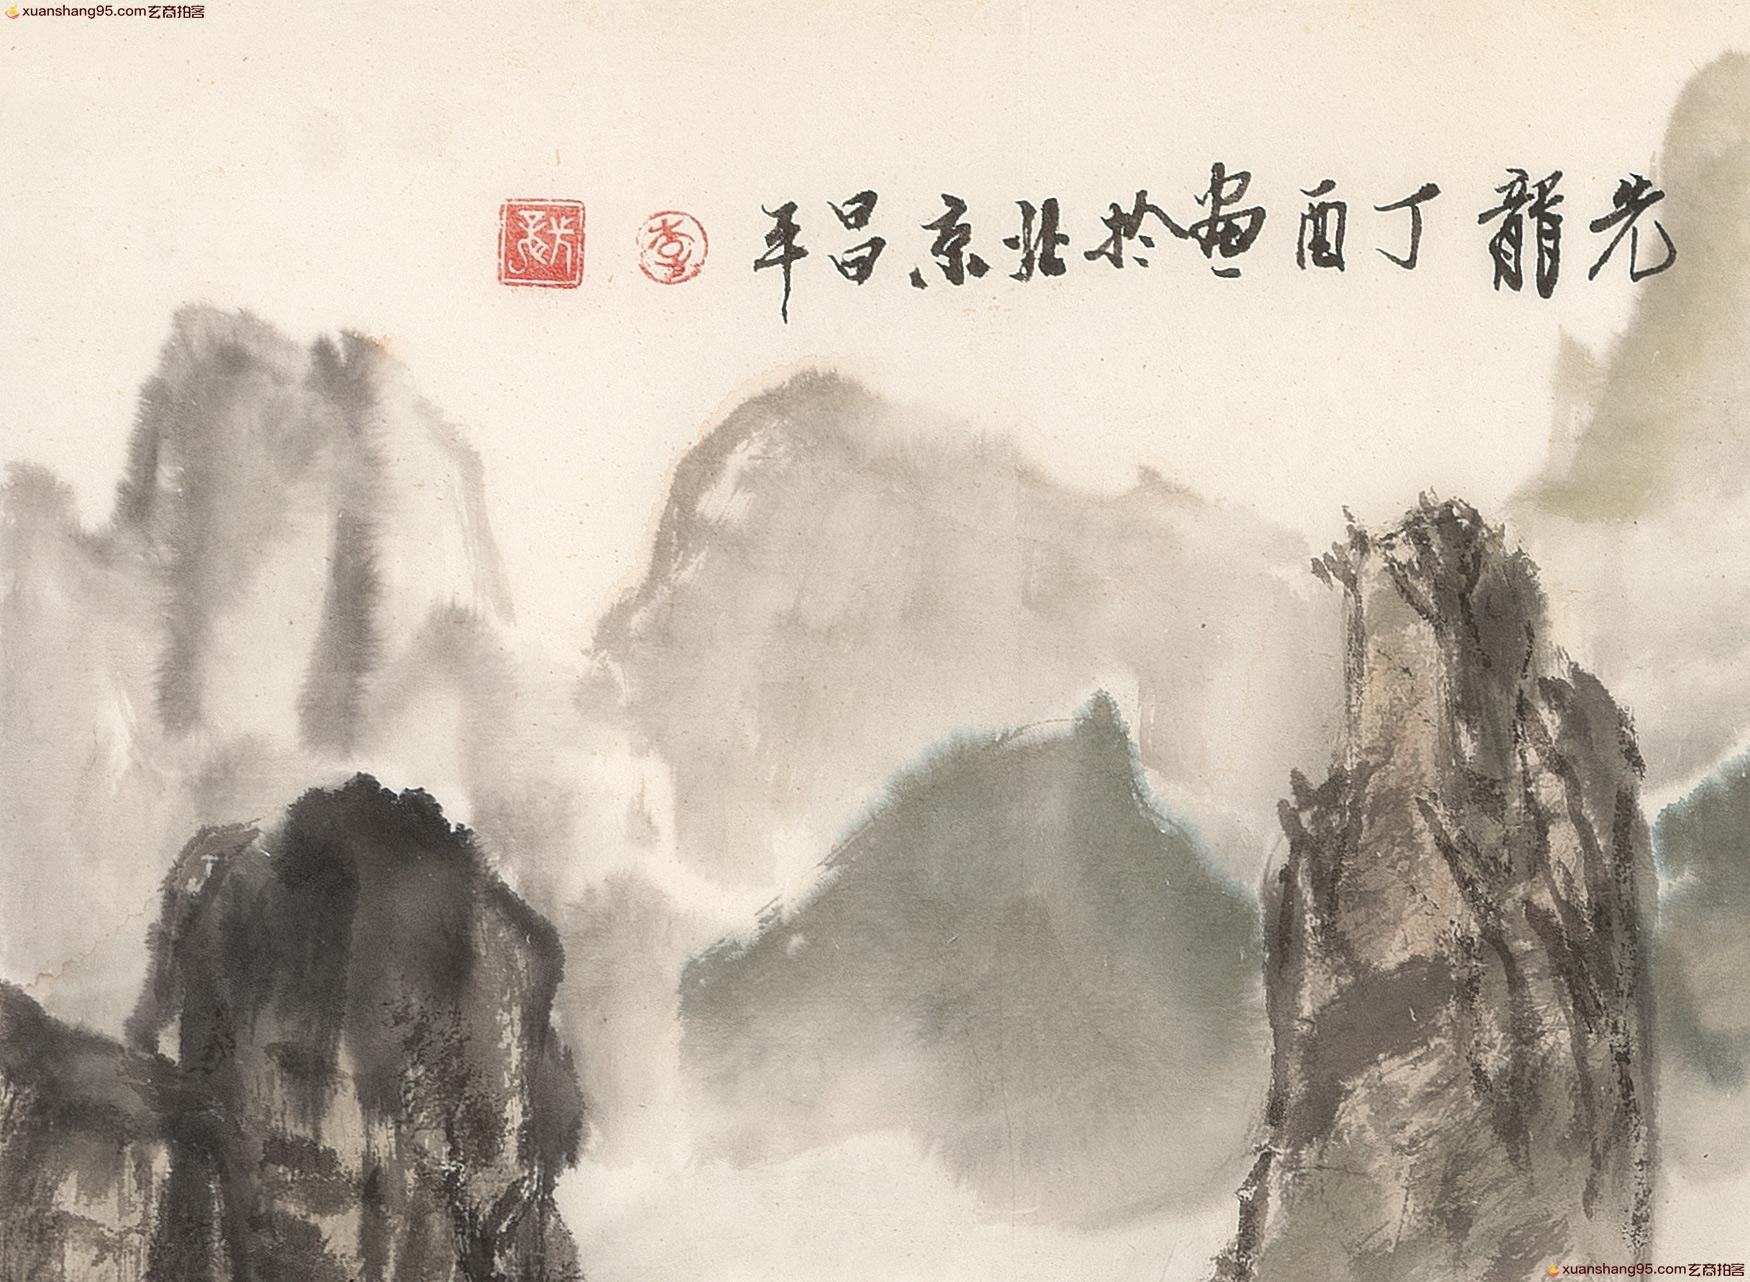 xuanshang95.com玄商拍客
先龍丁酉畫於北京昌平
李
xuanshang95.com玄商拍客